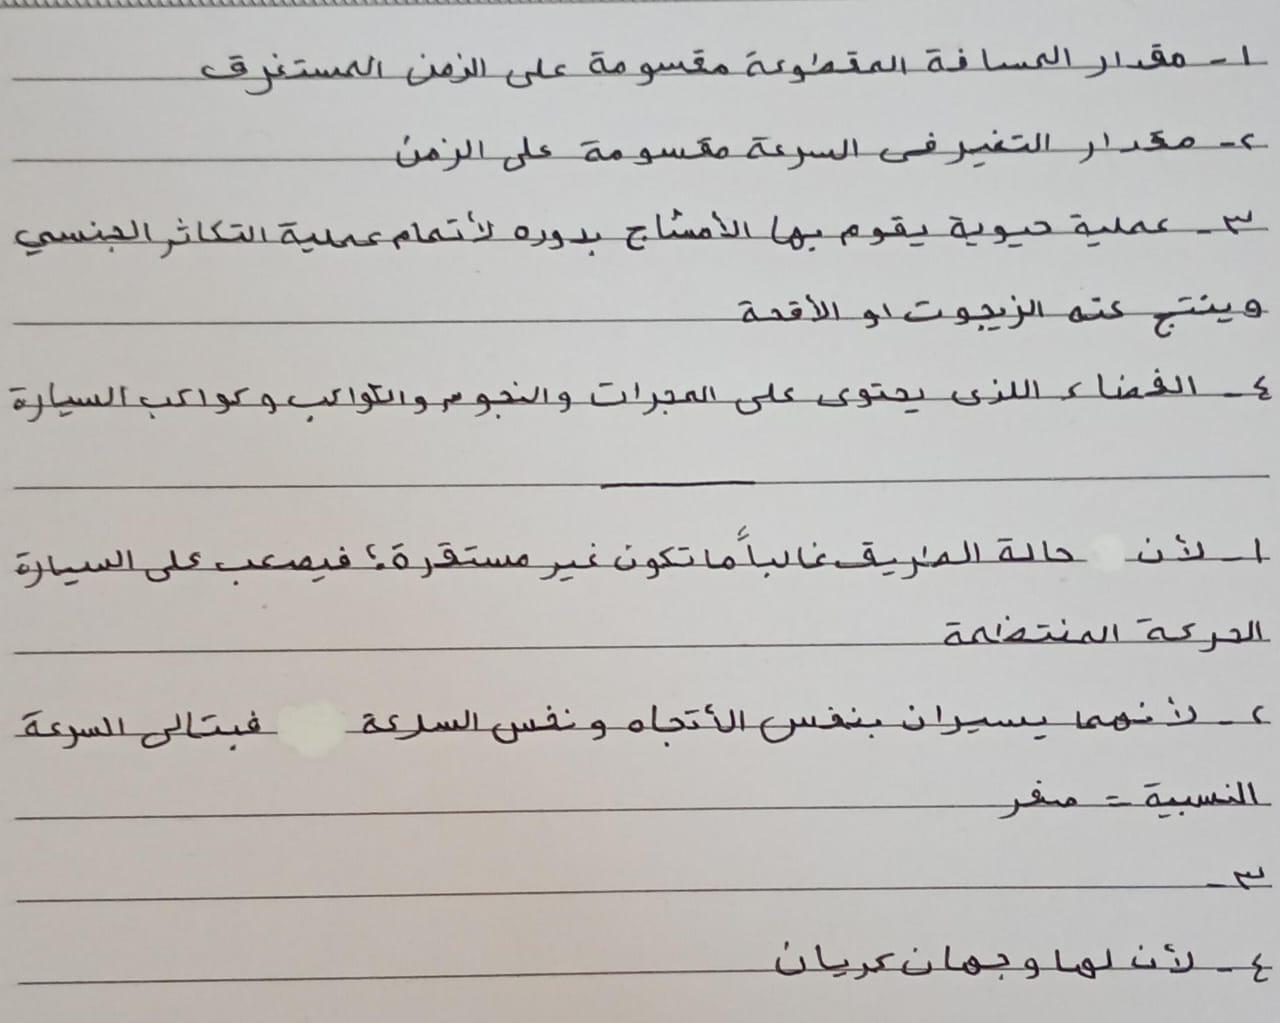 ١- مقدار المسافة المقطوعة مقسومة على الزمن المستغرق
٢- مقدار التغير فى السرعة مقسومة على الزمن
٣- عملية حيوية يقوم بها الأمشاج بدوره لأتمام عملية التكاثر الجنسي
وينتج عنه الزيجوت او الأقحة
٤- الفضاء اللذى يحتوى على المجرات والنجوم والكواكب وكواكب السيارة
١- لأن حالة الطريق غالباً ما تكون غير مستقرة؛ فيصعب على السيارة
الحركة المنتظمة
٢- لأنهما يسيران بنفس الأتجاه ونفس السرعة فبتالى السرعة
النسبية = صفر
٣-
٤- لأن لها وجهان كريان